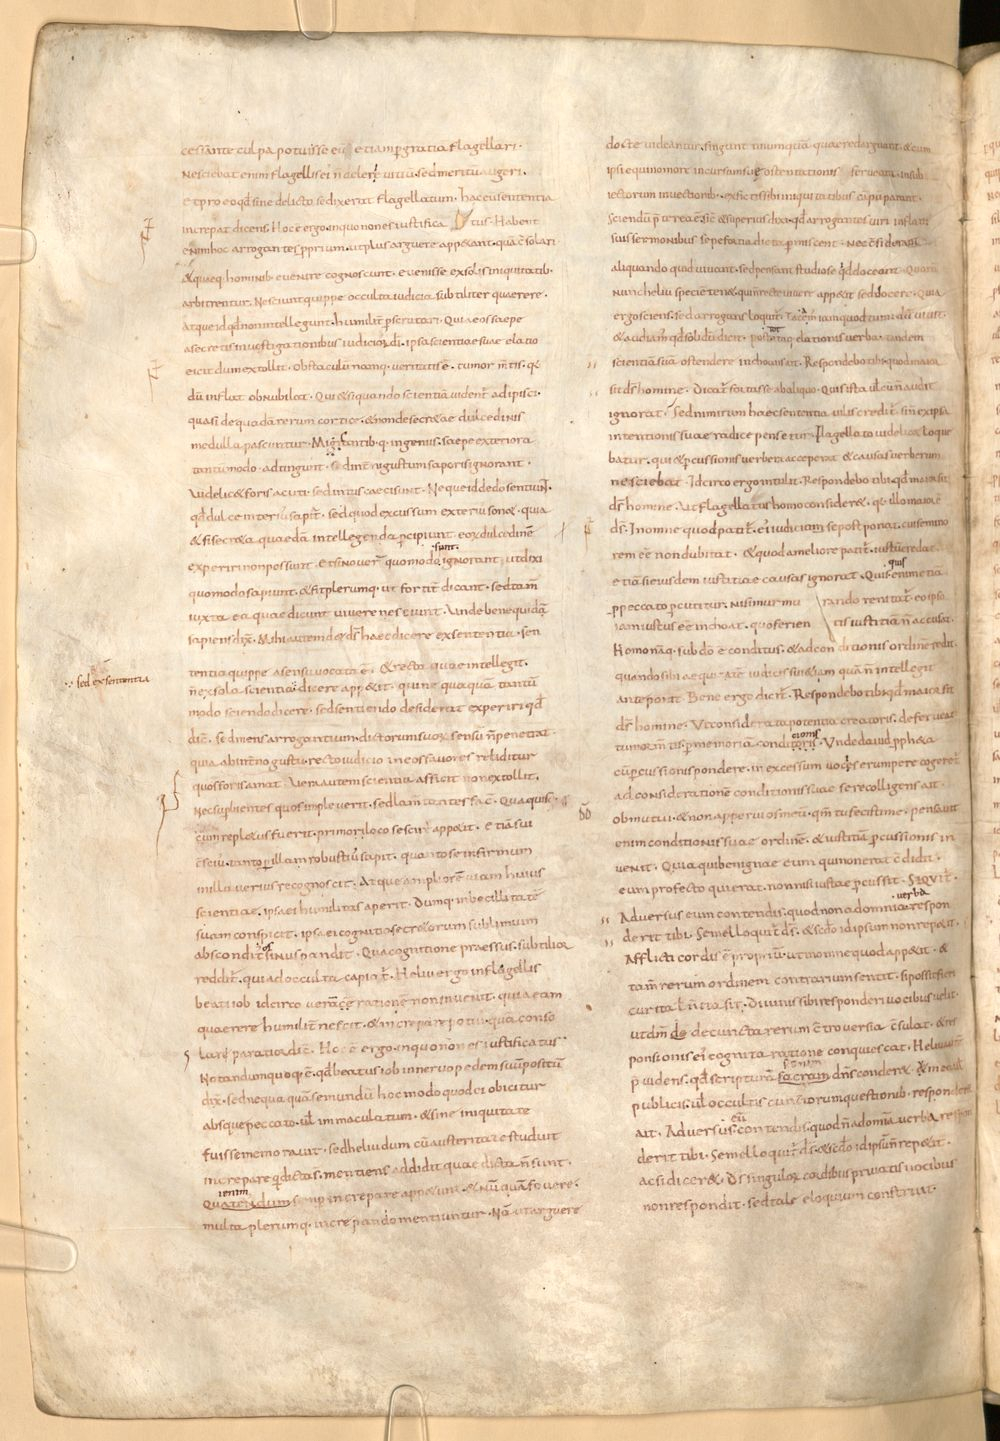 cessante culpa potuisse eū etiam p gratia flagellari·
Nesciebat enim flagellis ei n̄ deleri vitiū. sed meritū augeri.
et pro eo qd sine delicto se dixerat flagellatum. haec eu sententia
increpat dicens. Hoc ē ergo inquo non es iustifica tus· Habent
enim hoc arrogantes pprium. ut plus arguere appetant. quā c̄solari
& quaeq; hominib; evenire cognoscunt. evenisse ex solis iniquitatib;
arbitrentur. Nesciunt quippe occulta iudicia subtiliter quaerere·
atque id qd non intellegunt. humilit̄ pscrutari· Quia eos saepe
a secretis investigationibus iudicior̄ dī. ipsa scientiae suae elatio
eicit dum extollit. Obstaculū namq; veritatis ē. tumor m̄tis. qa
dū inflat obnubilat. Qui & si quando scientiā videnī adipisci.
quasi de quadā rerum cortice. & non de secretae dulcedinis
medulla pascuntur. Migrantib; q; ingeniis. saepe exteriora
tantūmodo adtingunt. sed int̄ni gustum saporis ignorant·
Videlic& foris acuti. sed intus caeci sunt. Neque id de dō sentiunt.
qd dulce interiū sapit̄. sed quod excussum exteriū sonet. quia
& si secreta quaedā intellegenda pcipiunt. eoȝ dulcedinē
experiri non possunt. Et si nover̄ quomodo sunt. ignorant ut dixi
quomodo sapiunt. & fit plerumq; ut fortit̄ dicant. sed tam̄
iuxta ea quae dicunt vivere nesciunt. Unde bene quidā
sapiens dix̄. Mihi autem det ds̄ haec dicere ex sententia. sen
∵ sed ex sententia
tentia quippe a sensu vocata ē. & recta quae intellegit.
n̄ ex sola scientia dicere appetit. qui nequaquā tantū
modo sciendo dicere. sed sentiendo desiderat experiri qd
dic̄. Sed mens arrogantium dictorum suoȝ sensū n̄ penetrat.
quia ab intn̄o gustu recto iudicio in eos savores reliditur
quos foris amat. Vera autem scientia afficit non extollit.
Nec suplientes quos impleverit. sed lam̄tantes fac̄. Qua quisq;
cum repletus fuerit. primori loco se scire appetit. Et iā sui
c̄scius. tanto p illam robustiū sapit. quanto se infirmum
in illa verius recognoscit. Atque ampliorē viam huius
scientiae. ipsa ei humilitas aperit. Dumq; inbecillitatē
suam conspicit. ipsa ei cognitio secretorum sublimium
absconditos sinus pandit. Qua cognitione praessus. subtilior
redditur. qui ad occulta capiat̄. Heliu ergo in flagellis
beati iob idcirco veracē rationē non invenit. quia eam
quaerere humilit̄ nescit. & increpare potiū quā conso
lare paratior dic̄. Hoc ē ergo. in quo non es iustificatus.
Notandumquoq; ē. qd beatus iob in nervo pedem suū positū
dix̄. sed nequaquā se mundū hoc modo quo dei obicitur
absque peccato. vel immaculatum. & sine iniquitate
fuisse memoravit. sed heliu dum cū austeritate studuit
increpare qd dictas. mentiens addidit quae dicta n̄ sunt.
ienim
Qua tendum semp increpare appetunt. & nūquā fovere.
multa plerumq; increpando mentiuntur. Nā ut arguere
docte videantur. fingunt nnumquā quae redarguant. & cum
ipsi equinomore incursamsue ostentationis ferveant. in sub
iectorum invectionib; ex fictis sibi iniquitatibus cāpū parant.
Sciendū pterea ē. sic & superius dixi. qd arrogantes viri inflatis
suis sermonibus sepe fortia dicta pmiscent. Nec c̄siderant
aliquando quid vivunt. sed pensant studiose qd doceant.
Nunc heliu speciē tenet. qui n̄ recte vivere appetit. sed docere. Quia
ergo sciens. sed arrogans loquit̄. Tacām iam quod tumidū vivit.
& audiam̄ qd solidū dicit. post tot itaq; elationis verba. tandem
scientiā suā ostendere inchoans ait. Respondebo tibi. quod maior
sit ds̄ homine. Dicat̄ fortasse ab aliquo. Quis ista vl̄ cū n̄ audit
ignorat. Sed nimirum haec sententia vilis credit̄. si n̄ ex ipsa
intentionis suae radice pensetur. Flagellato videlicet loque
batur. qui & pcussionis verbera acceperat & causas verberum
nesciebat. Idcirco ergo intulit. Respondebo tibi. qd maior sit
ds̄ homine. Ait flagellatus homo consideret. qa illo maior ē
ds̄. In omne quod patit̄. ei iudiciam se postponat. cui se mino
rem eē non dubitat. & quod a meliore patit̄. iustū credat.
etiā si eiusdem iustitiae causas ignorat. Quisquis enim etiā
p peccato pcutitur. nisi murmurando renitat̄. eo ipso
iam iustus eē inchoat. quo ferientis iustitiā n̄ accusat.
Homo nāq; sub dō ē conditus. & ad conditionis ordinē redit.
quando sibi aequitatē iudicis sui etiam quā n̄ intellegit
anteponat. Bene ergo dicit̄. Respondebo tibi qd maior sit
ds̄ homine. Ut considerata potentia creatoris. deferveat
tumor m̄tis. p memoriā conditionis. Unde david ppheta
cū pcussionis pondere. in excessum vocis erumpere cogeret̄
ad considerationē conditionis suae se recolligens ait.
obmutui. & non aperui os meū. qm̄ tu fecisti me. pensavit
enim conditionis suae ordinē. & iustitiā pcussionis in
venit. Quia qui benigne eum qui non erat c̄didit.
eum profecto qui erat. non nisi iustae pcussit. SEQVIT̄.
Adversus eum contendis. quod non ad omnia verba respon
derit tibi. Semel loquit̄ ds̄. & scdo id ipsum non repetit.
Afflicti cordis ē propriū. ut in omne quod appetit. &
tam̄ rerum ordinem contrarium sentit. si possit fieri
cur ita vel n̄ ita sit. Divinis sibi responderi vocibus velit.
ut dm̄ de cuncta rerum c̄troversia c̄sulat. & res
ponsionis ei cognita ratione conquiescat. Heliu autem
p videns. qd scripturā sacram dn̄s conderet.
publicis. vl̄ occultis cunctorum questionib; responderet
ait. Adversus eū contendis. quod n̄ ad omnia verba respon
derit tibi. Semel loquit̄ ds̄. & scdo id ipsū n̄ repetit.
ac si diceret. Ds̄ singuloȝ cordibus privatis vocibus
non respondit. sed tale eloquium construit.